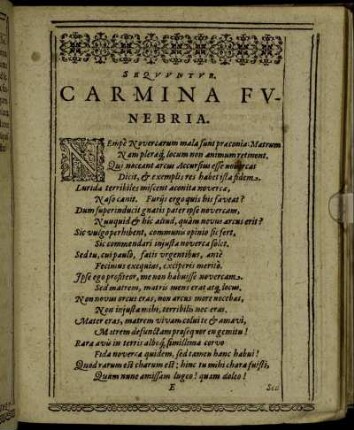 SEQVVNTVR
CARMINA FV-
NEBRIA.
NEmpè Novercarum mala sunt præconia: Matrum
Nam pleraq́; locum non animum retinent.
Qui noceant arcus Accursius esse novercas
Dicit, & exemplis res habet ista fidem.
Lurida terribiles miscent aconita novercæ,
Naso canit. Furijs ergo quis his faveat?
Dum superinducit gnatis pater ipse novercam,
Nunquid & hic aliud, quàm novus arcus erit?
Sic vulgo perhibent, communis opinio sic fert,
Sic commendari injusta noverca solet.
Sed tu, cui paulò, fatis urgentibus, antè
Fecimus exequias, exciperis meritò.
Ipse ego profiteor, me non habuisse novercam,
Sed matrem, matris mens erat atq; locus.
Non novus arcus eras, non arcus more nocebas,
Non injusta mihi, terribilis nec eras.
Mater eras, matrem vivam colui te & amavi,
Matrem defunctam prosequor en gemitu!
Rara avis in terris albóq; simillima corvo
Fida noverca quidem, sed tamen hanc habui!
Quod rarum est charum est; hinc tu mihi chara fuisti,
Quum nunc amissam lugeo! quam doleo!
E